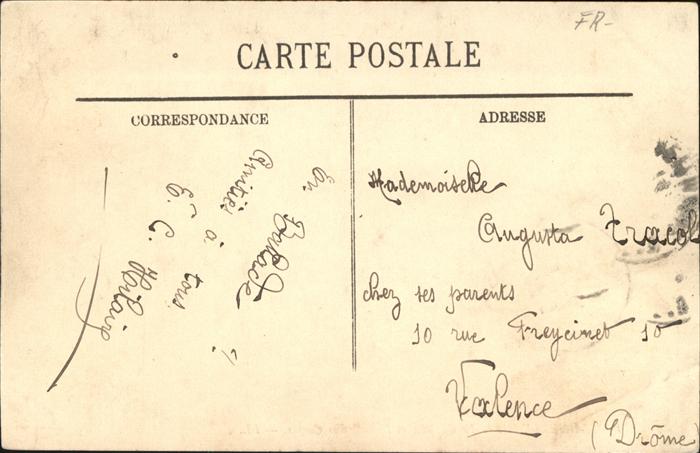 FR-
CARTE POSTALE
CORRESPONDANCE
En Balade !
Amitiés à tous
E. C. Horlaix
ADRESSE
Mademoiselle
Augusta Tracol
chez ses parents
10 rue Freycinet 10
Valence
(Drôme)